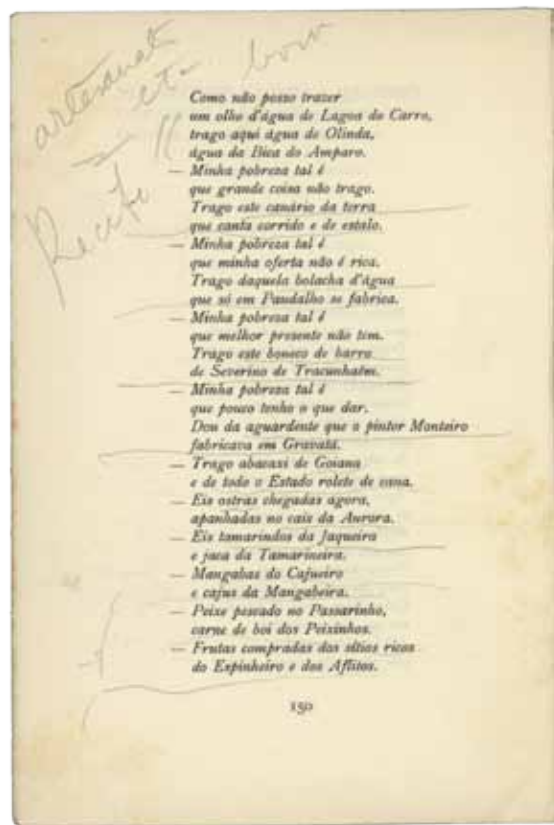 artesanato
etc bom
Recife
Como não posso trazer
um olho d'água de Lagoa do Carro,
trago aqui água de Olinda,
água da Bica do Amparo.
— Minha pobreza tal é
que grande coisa não trago.
Trago este canário da terra
que canta corrido e de estalo.
— Minha pobreza tal é
que minha oferta não é rica.
Trago daquela bolacha d'água
que só em Paudalho se fabrica.
— Minha pobreza tal é
que melhor presente não tem.
Trago este boneco de barro
de Severino de Tracunhaém.
— Minha pobreza tal é
que pouco tenho o que dar.
Dou da aguardente que o pintor Monteiro
fabricava em Gravatá.
— Trago abacaxi de Goiana
e de todo o Estado rolete de cana.
— Eis ostras chegadas agora,
apanhadas no cais da Aurora.
— Eis tamarindos da Jaqueira
e jaca da Tamarineira.
— Mangabas do Cajueiro
e cajus da Mangabeira.
— Peixe pescado no Passarinho,
carne de boi dos Peixinhos.
— Frutas compradas dos sítios ricos
do Espinheiro e dos Aflitos.
150